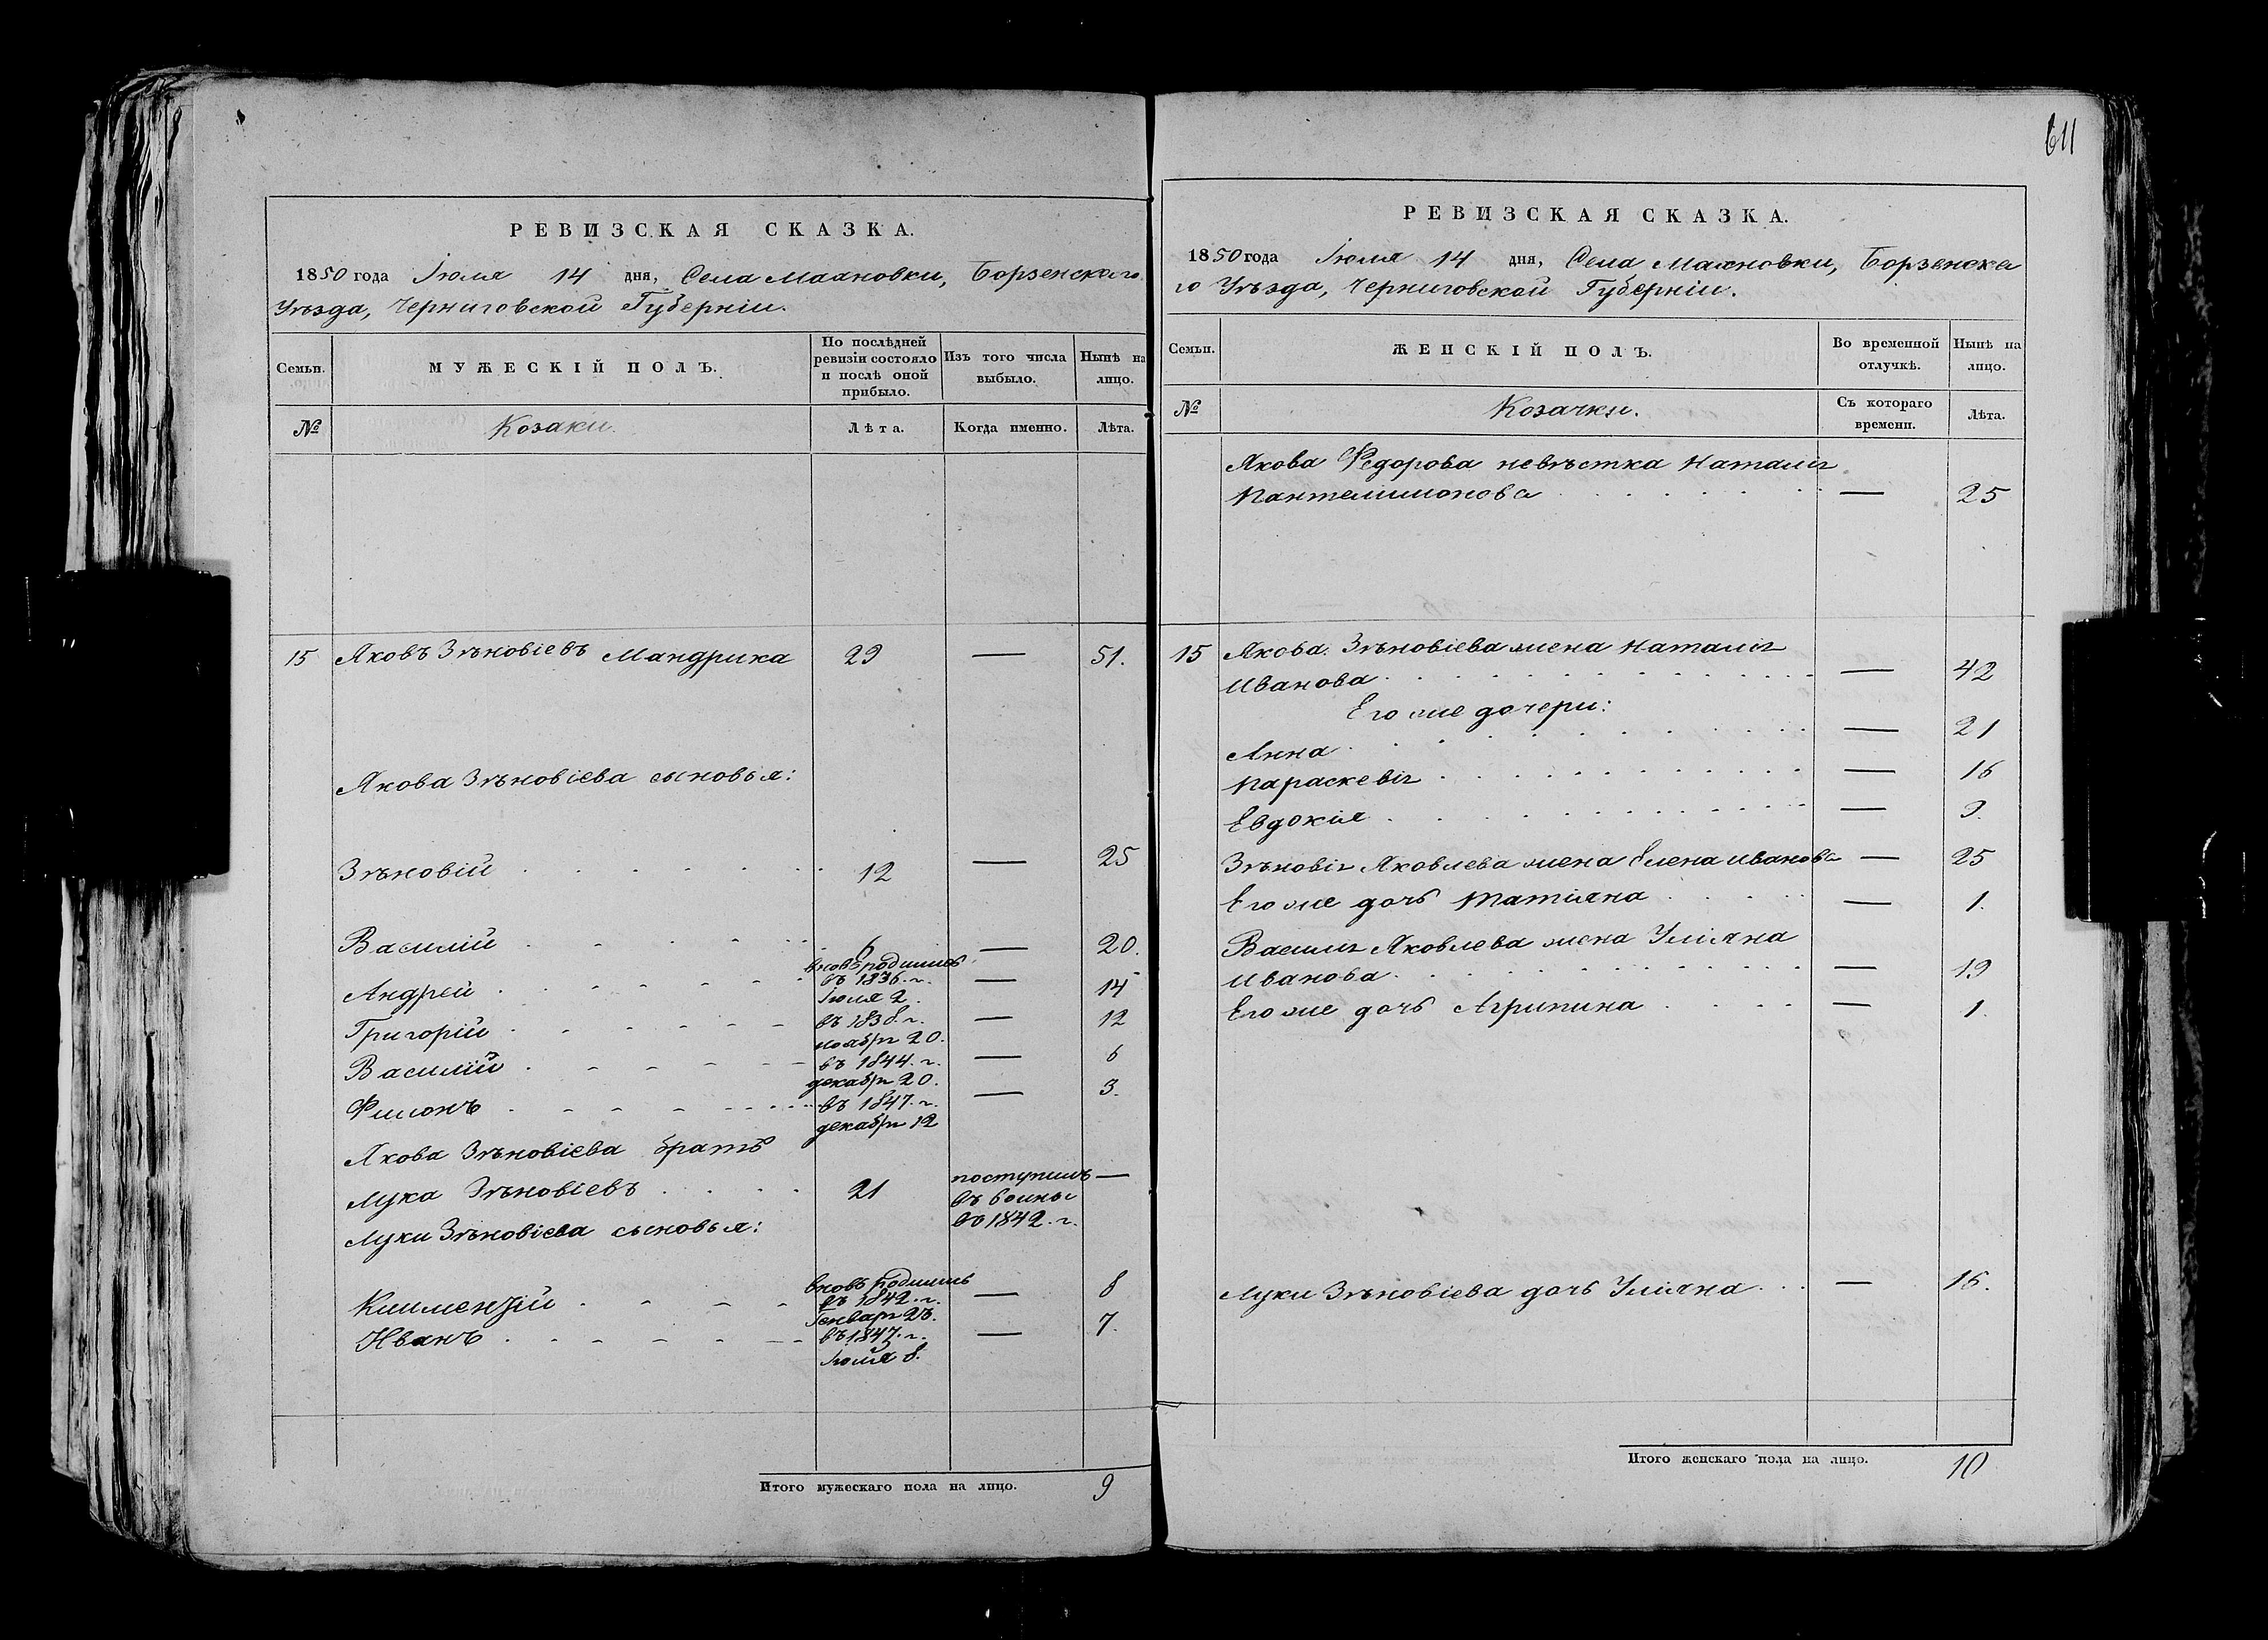 611
РЕВИЗСКАЯ СКАЗКА.
1850 года Іюля 14 дня, Села Малновки, Борзенскаго
Уѣзда, Черниговской Губерніи.
Семьи.
МУЖЕСКІЙ ПОЛЪ.
По послѣдней
ревизіи состояло
и послѣ оной
прибыло.
Изъ того числа
выбыло.
Нынѣ на
лицо.
№
Козаки.
Лѣта.
Когда именно.
Лѣта.
15 Яковъ Зѣновіевъ Мандрика 29 — 51.
Якова Зѣновіева сыновья:
Зѣновій 12 — 25
Василій 6 — 20.
вновь родились
Андрей въ 1836. г. — 14
Іюля 2.
Григорій въ 1838. г. — 12
ноября 20.
Василій въ 1844. г. — 6
декабря 20.
Филонъ въ 1847. г. — 3.
декабря 12
Якова Зѣновіева братъ
Лука Зѣновіевъ 21 поступилъ —
въ воины
въ 1842. г.
Луки Зѣновіева сыновья:
вновь родились
Климентій въ 1842. г. — 8
Генваря 23.
Иванъ въ 1847. г. — 7.
Іюля 8.
Итого мужескаго пола на лицо. 9
РЕВИЗСКАЯ СКАЗКА.
1850 года Іюля 14 дня, Села Малновки, Борзенска
го Уѣзда, Черниговской Губерніи.
Семьи.
ЖЕНСКІЙ ПОЛЪ.
Во временной
отлучкѣ.
Нынѣ на
лицо.
№
Козачки.
Съ котораго
времени.
Лѣта.
Якова Федорова невѣстка Наталія
Пантелимонова — 25
15 Якова Зѣновіева жена Наталія
Иванова — 42
Его же дочери:
Анна — 21
Параскевія — 16
Евдокія — 9.
Зѣновія Яковлева жена Елена Иванова — 25
Его же дочь Татіяна — 1.
Василія Яковлева жена Уліяна
Иванова — 19
Его же дочь Агрипина — 1.
Луки Зѣновіева дочь Уліяна — 16.
Итого женскаго пола на лицо. 10